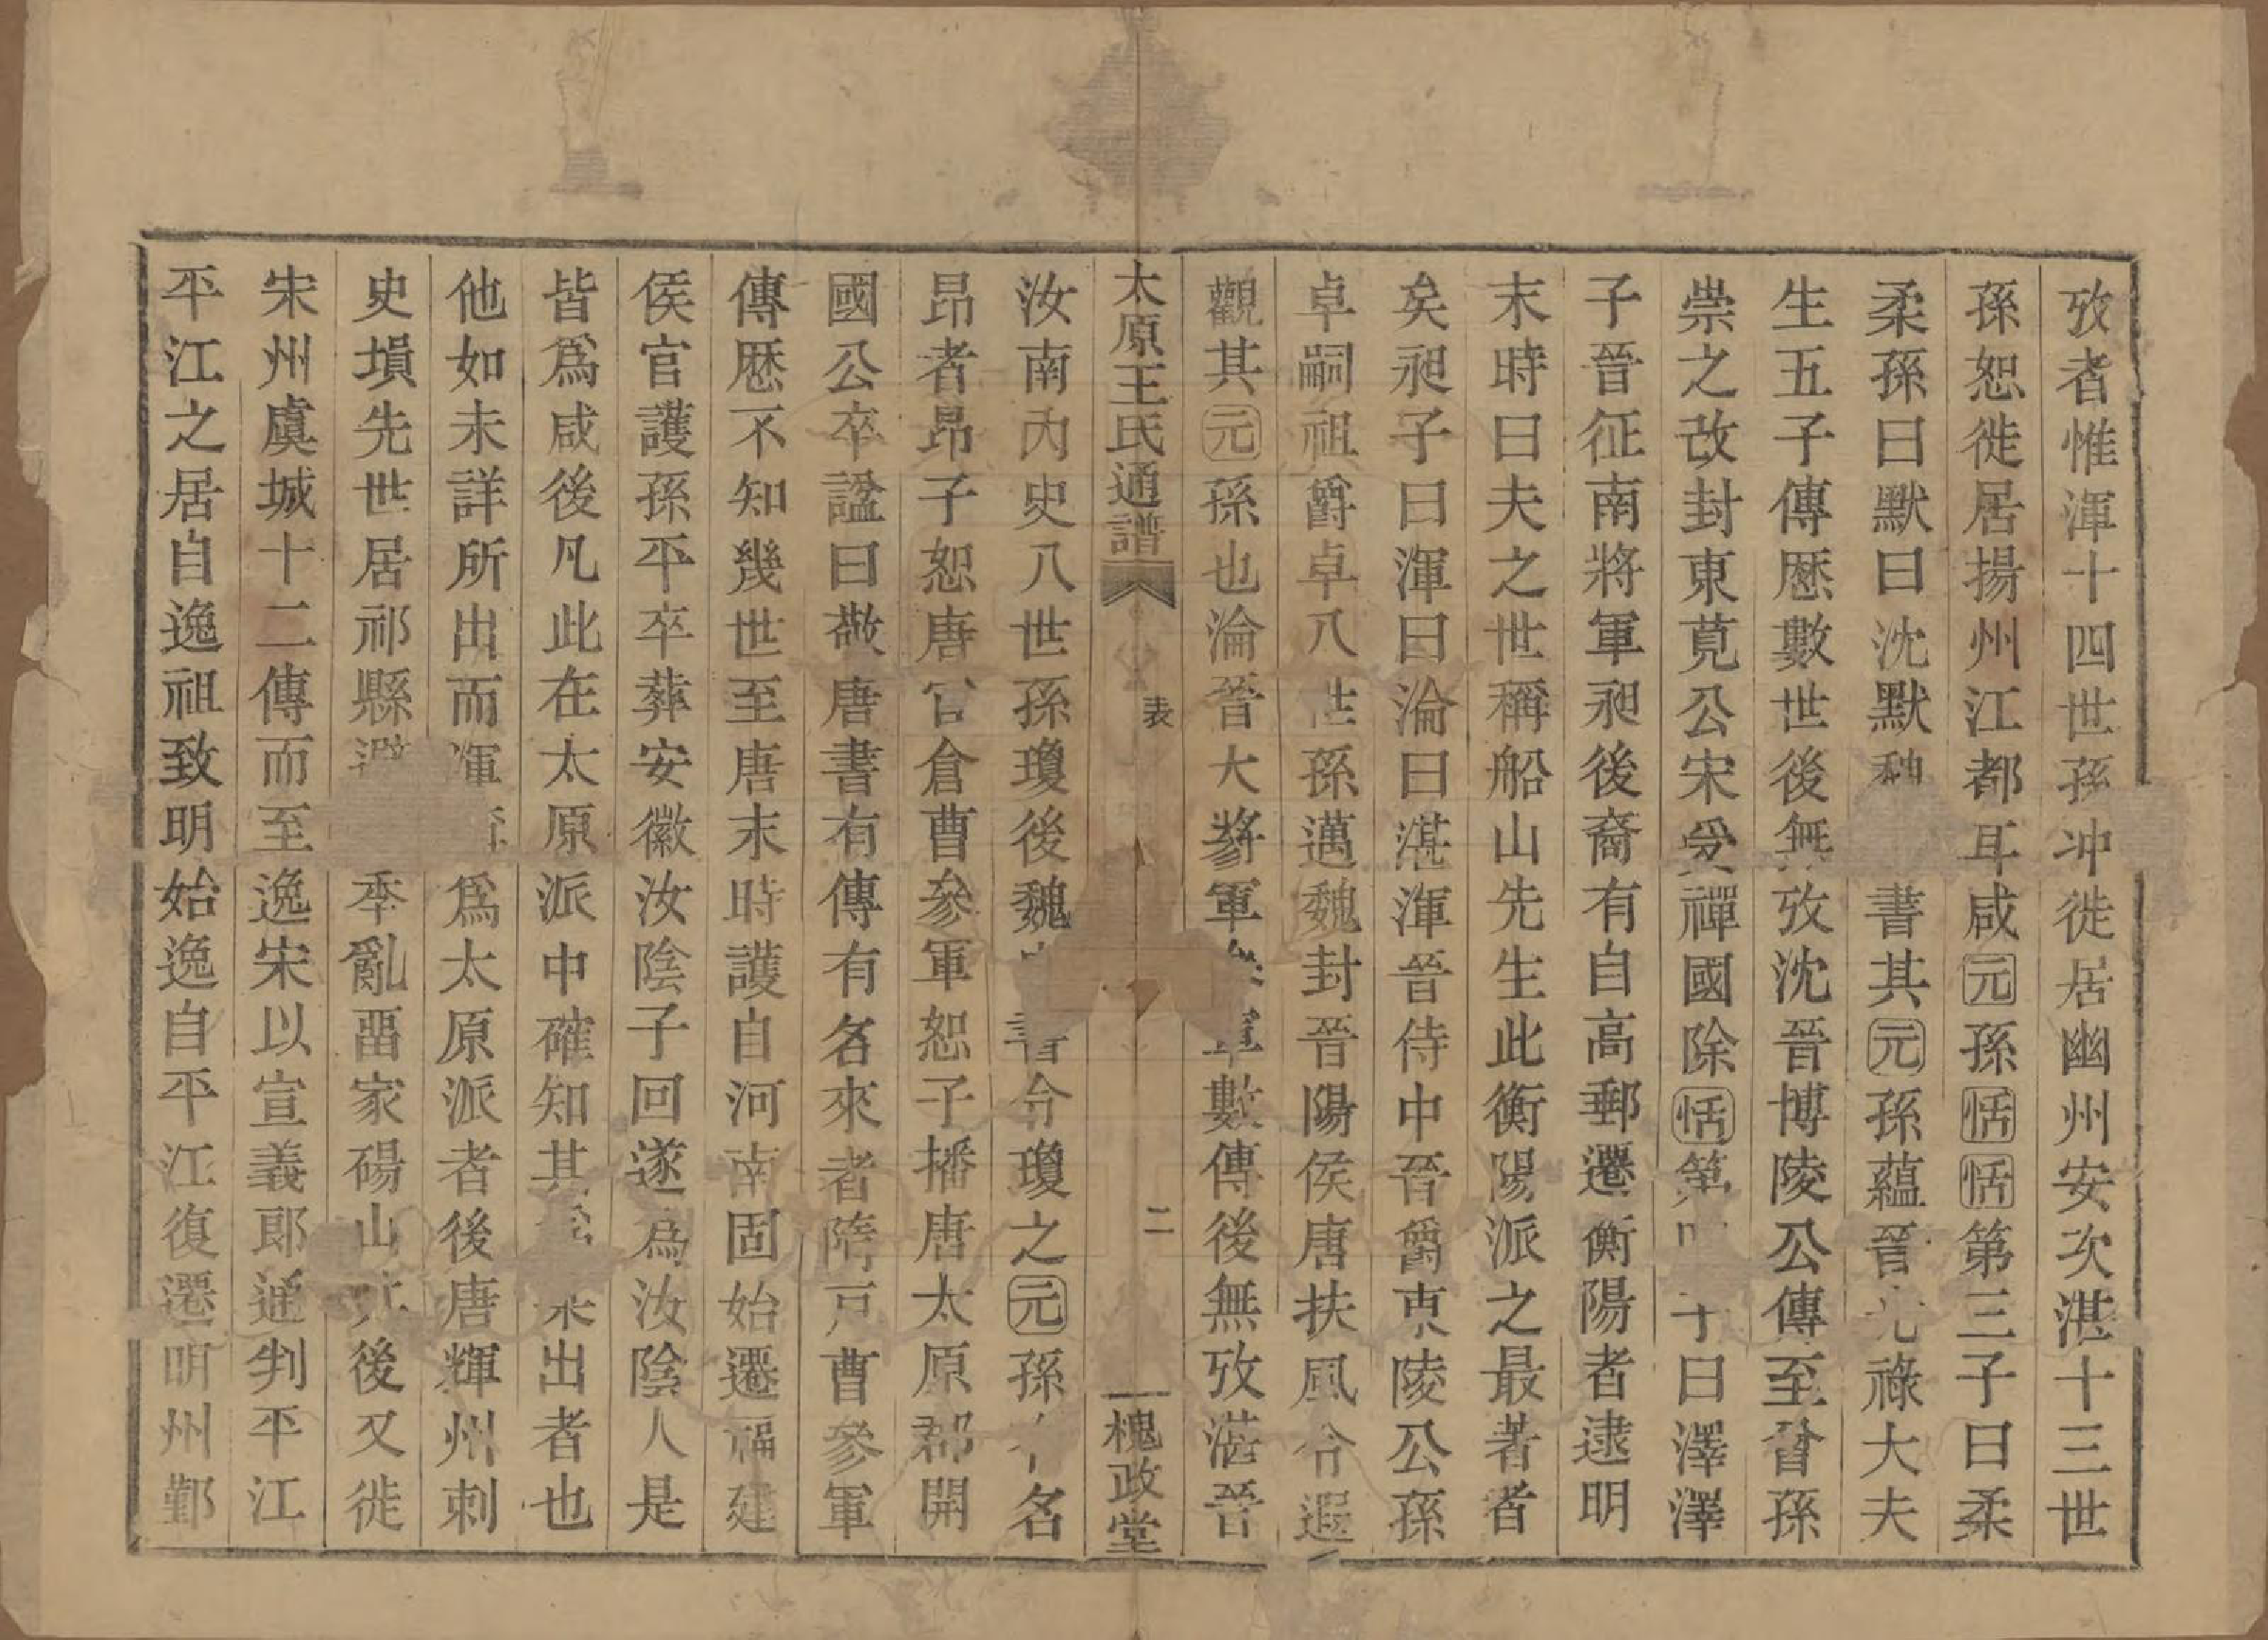 攷者惟渾十四世孫冲徙居幽州安次湛十三世
孫恕徙居揚州江都耳咸元孫恬恬第三子曰柔
柔孫曰默曰沈默 書其元孫蘊晉光祿大夫
生五子傳歴數世後無攷沈晉博陵公傳至曾孫
崇之改封東莞公宋受禪國除恬第 子曰澤澤
子晉征南將軍昶後裔有自高郵遷衡陽者逮明
末時曰夫之世稱船山先生此衡陽派之最著者
矣昶子曰渾曰淪曰湛渾晉侍中晉爵東陵公孫
卓嗣祖爵卓八世孫邁魏封晉陽侯唐扶風令遐
觀其元孫也淪晉大將軍參軍數傳後無攷湛晉
太原王氏通譜 表 二 槐政堂
汝南內史八世孫瓊後魏 書令瓊之元孫有名
昂者昂子恕唐官倉曹參軍恕子播唐太原郡開
國公卒諡曰敬唐書有傳有名來者隋戸曹參軍
傳歴不知幾世至唐末時護自河南固始遷福建
侯官護孫平卒葬安徽汝陰子回遂為汝陰人是
皆為咸後凡此在太原派中確知其 出者也
他如未詳所出而渾 為太原派者後唐輝州刺
史塤先世居祁縣避 季亂畱家碭山 後又徙
宋州虞城十二傳而至逸宋以宣義郎通判平江
平江之居自逸祖致明始逸自平江復遷明州鄞